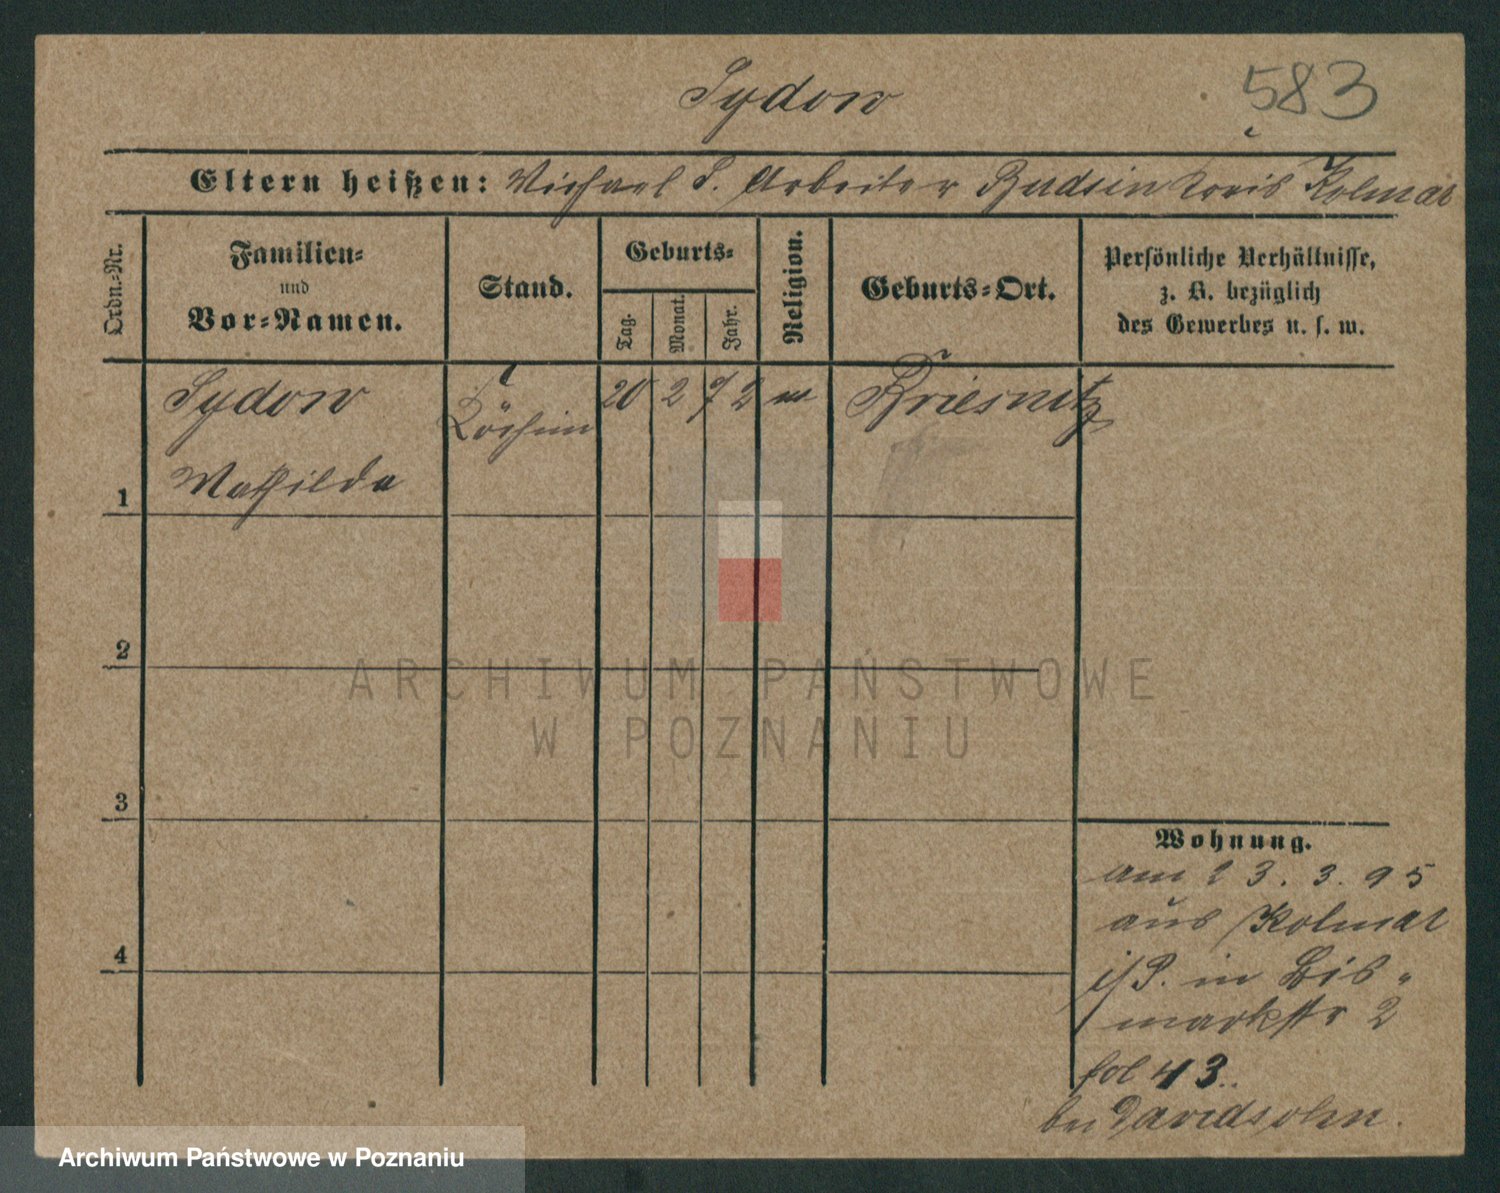 Sydow
583
Eltern heißen: Michael S. Arbeiter Budsin Kreis Kolmar
Ordn.-Nr.
Familien-
und
Vor-Namen.
Stand.
Geburts-
Tag.
Monat.
Jahr.
Religion.
Geburts-Ort.
Persönliche Verhältnisse,
z. B. bezüglich
des Gewerbes u. s. w.
Sydow
Köchin
20 2 72
Briesnitz
Mathilde
1
2
3
4
ARCHIWUM PAŃSTWOWE
W POZNANIU
Wohnung.
am 23. 3. 95
aus Kolmar
i/P. in Bis-
markstr 2
fol 43.
bei Davidsohn.
Archiwum Państwowe w Poznaniu